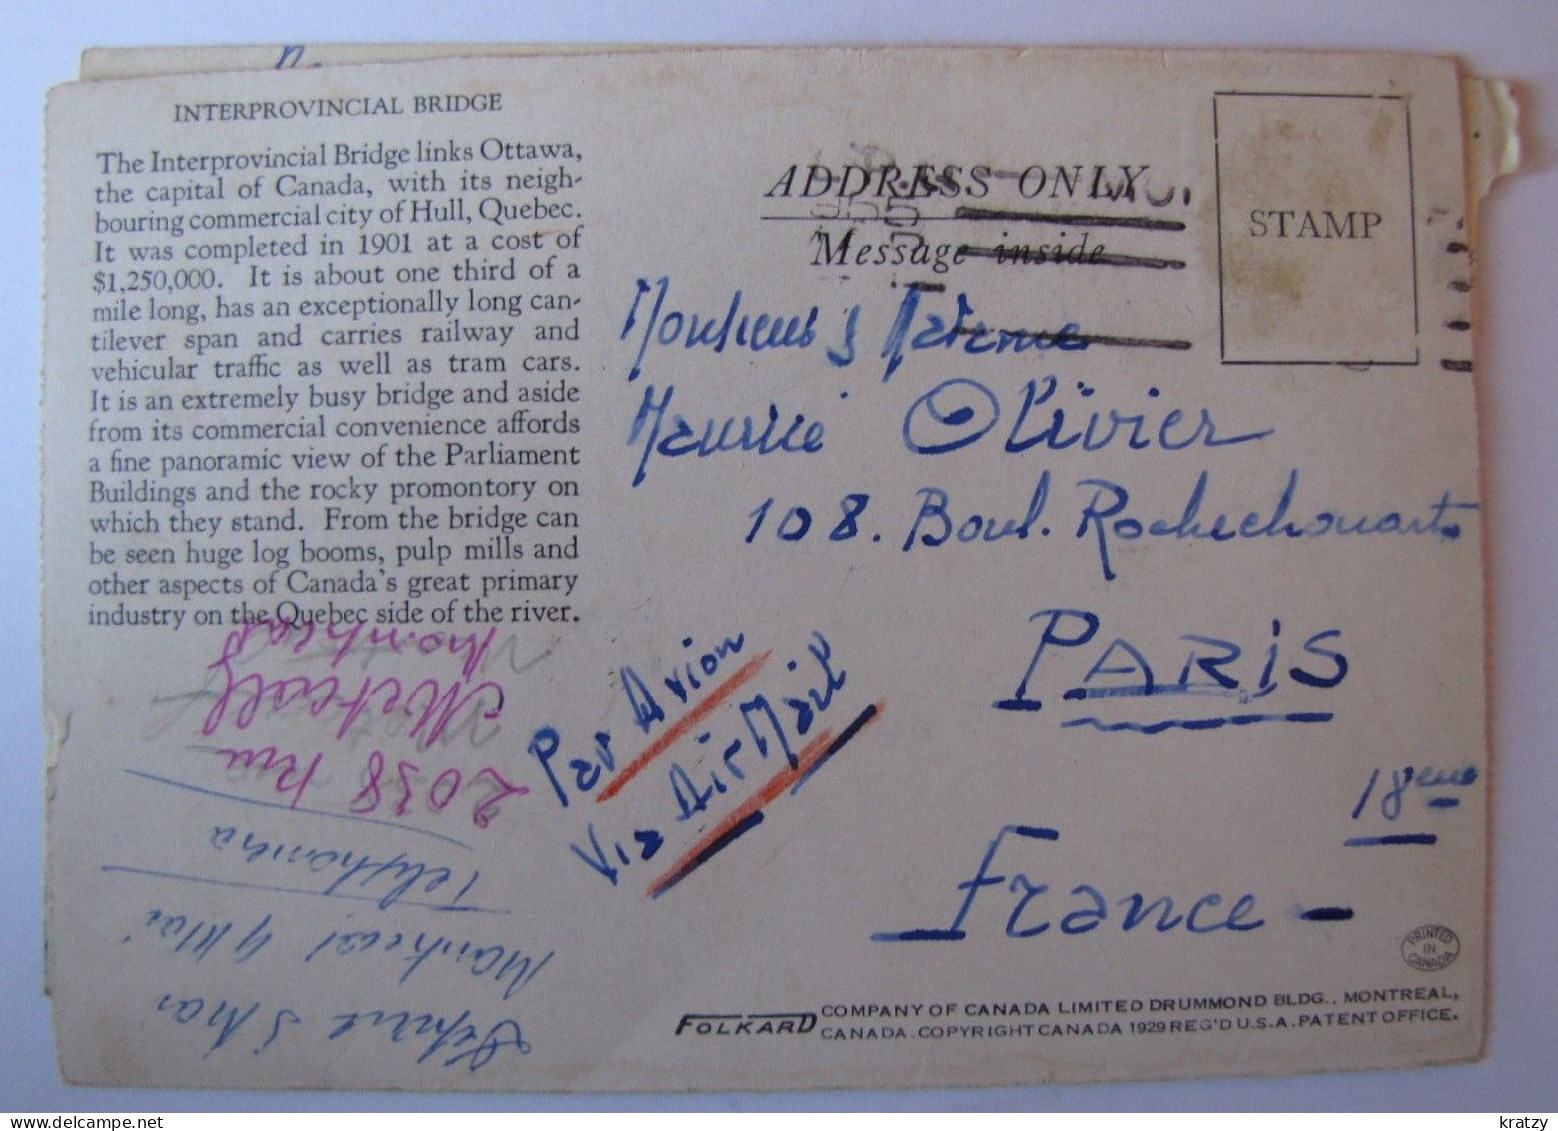 INTERPROVINCIAL BRIDGE
The Interprovincial Bridge links Ottawa,
the capital of Canada, with its neigh-
bouring commercial city of Hull, Quebec.
It was completed in 1901 at a cost of
$1,250,000. It is about one third of a
mile long, has an exceptionally long can-
tilever span and carries railway and
vehicular traffic as well as tram cars.
It is an extremely busy bridge and aside
from its commercial convenience affords
a fine panoramic view of the Parliament
Buildings and the rocky promontory on
which they stand. From the bridge can
be seen huge log booms, pulp mills and
other aspects of Canada's great primary
industry on the Quebec side of the river.
ADDRESS ONLY
Message inside
STAMP
Maurice Olivier
108. Boul. Rochechouart
PARIS
18eme
France
Par Avion
Via Air Mail
2038 Rue
Metcalf
Montreal
Montreal 4 Mai
PRINTED
IN
CANADA
FOLKARD COMPANY OF CANADA LIMITED DRUMMOND BLDG., MONTREAL,
CANADA. COPYRIGHT CANADA 1929 REG'D U.S.A. PATENT OFFICE.
www.delcampe.net
kratzy